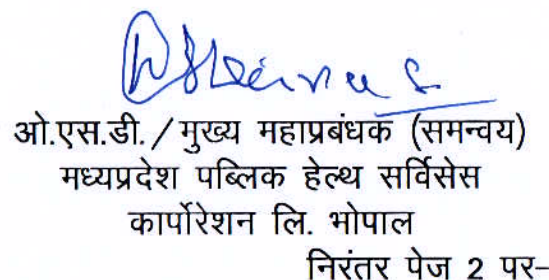 ओ.एस.डी./मुख्य महाप्रबंधक (समन्वय)
मध्यप्रदेश पब्लिक हेल्थ सर्विसेस
कार्पोरेशन लि. भोपाल
निरंतर पेज 2 पर–